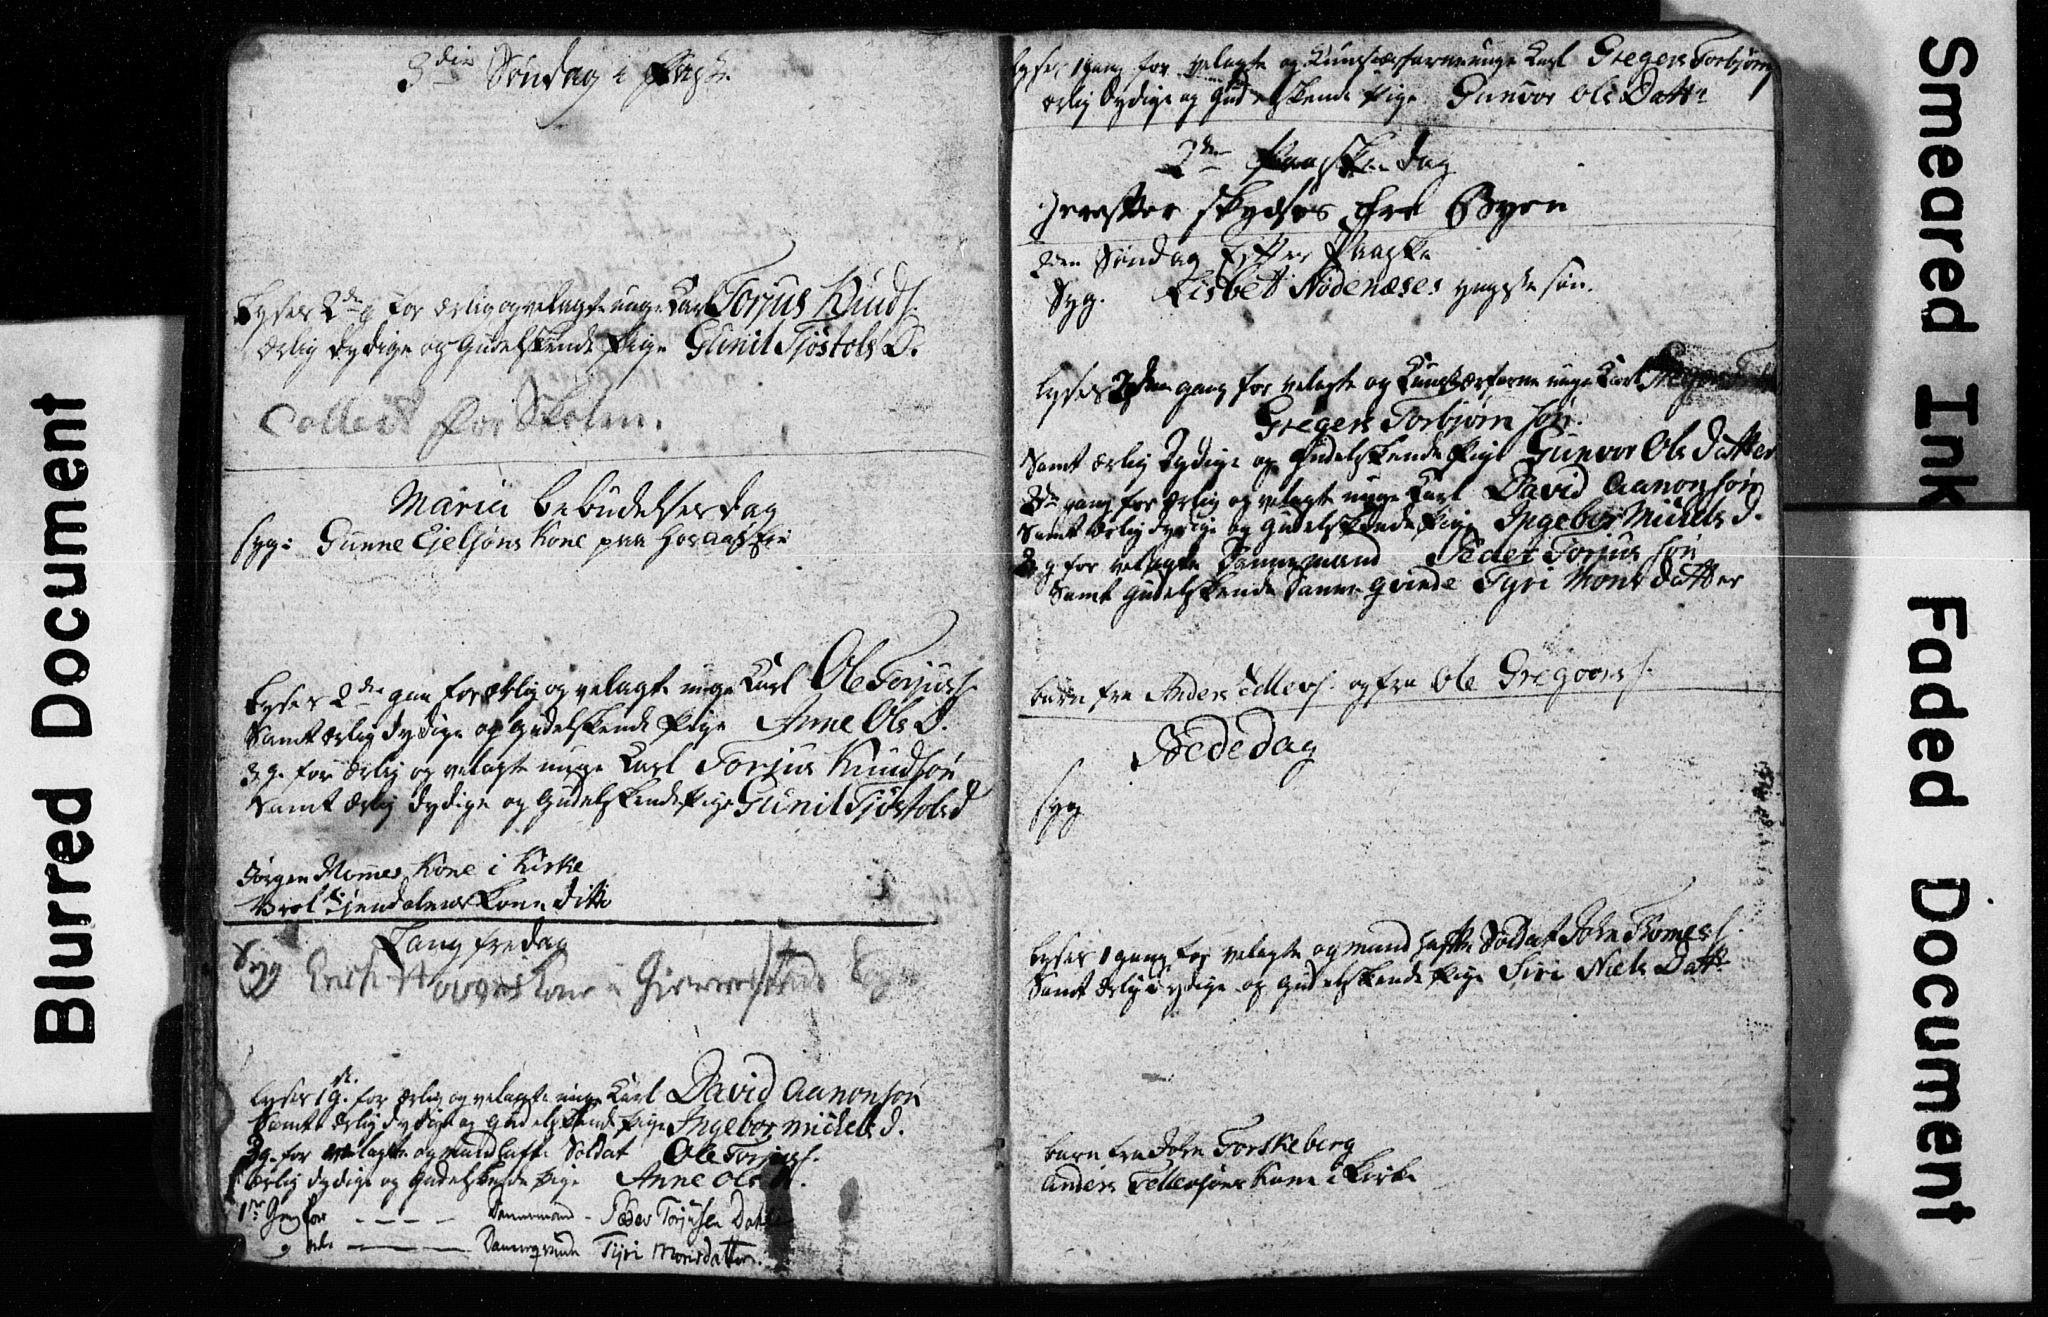 3die Søndag i Faste
Lyses 2den g for ærlig og velagte unge Karl Torjus Knuds.
ærlig dydige og Gudelskende Pige Gunil Tjøstols D.
Collect for Skolen.
Mariæ bebudelses dag
syg: Gunne Ejelsøns Kone paa
Lyses 2den gan for ærlig og velagte unge Karl Ole Torjuss.
Samt ærlig dydige og gudelskende Pige Anne Ols D.
3 g. for ærlig og velagte unge Karl Torjus Knudsøn
Samt ærlig dydige og Gudelskende Pige Gunil Tjøstols d
Jørgen Momes Kone i Kirke
Kone ditto
Lang fredag
Syg Kone i
Lyses 1st g. for ærlig og velagte unge Karl David Aanonsøn
Samt ærlig dydige og gudelskende Pige Ingebor Michels d.
3 g. for velagte og mandhafte Soldat Ole Torjuss.
ærlig dydige og Gudelskende Pige Anne Ols D.
1ste Gang for — — — — Dannemand - Peder Torjusen
og — — — Danneqvinde Tyri Monsdatter.
Lyses 1 gang for velagte og Kunsterfarne unge Karl Gregers Torbjørns
ærlig dydige og Gudelskende Pige Gunvor Ols Datter
2den Paaskedag
herefter skydses fra Byen
Søndag Efter Paaske
Syg. Lisbet Nødenæses yngste søn.
Lyses 2den gang for velagte og Kunsterfarne unge Karl
Gregers Torbjørn søn.
Samt ærlig Dydige og Gudelskende Pige Gunvor Ols datter
2den gang for ærlig og velagte unge Karl David Aanonsøn
Samt ærlig dydige og Gudelskende Pige Ingebor Michels d.
2 g for velagte Dannemand Peder Torjus søn
Samt gudelskende Danne qvinde Tyri Mons datter
barn fra Anders Tellevs. og fra Ole Gregoers s.
Bededag
syg
Lyses 1 gang for velagte og mandhafte Soldat John Thomess.
Samt ærlig dydige og Gudelskende Pige Siri Niels Datter
barn fra John Torskeberg
Anders Tellevsøns Kone i Kirke
Blurred Document
Smeared Ink
Faded Document